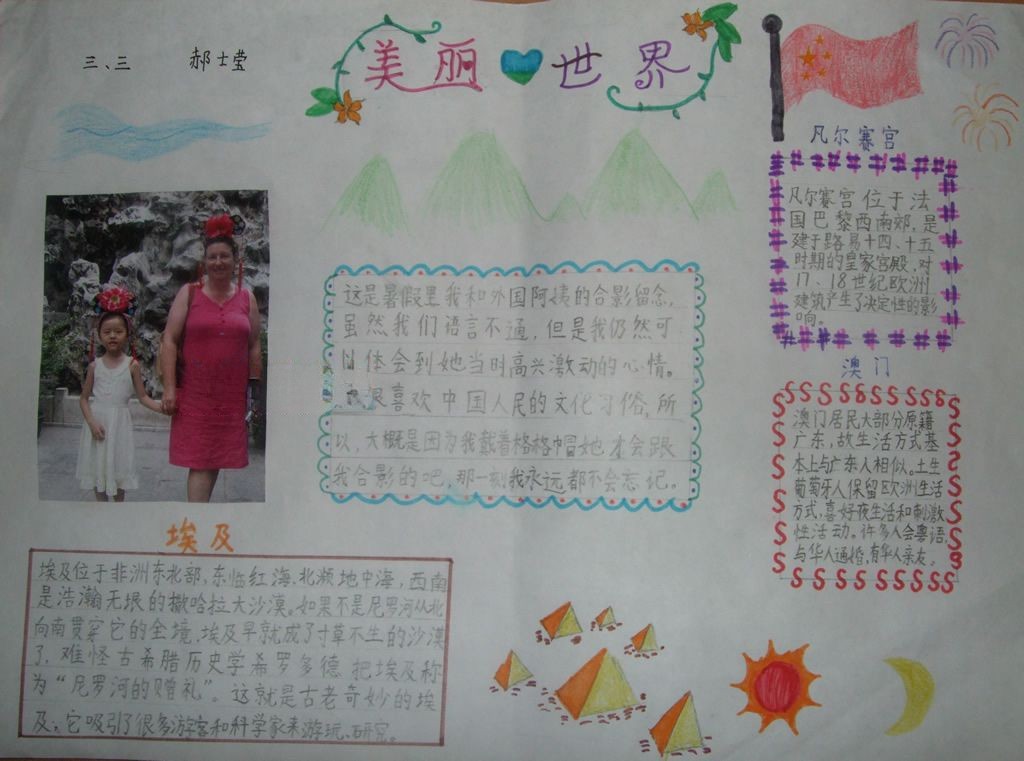 三、三 郝士莹
美丽世界
凡尔赛宫
凡尔赛宫位于法
国巴黎西南郊,是
建于路易十四、十五
时期的皇家宫殿,对
17、18世纪欧洲
建筑产生了决定性的影
响。
这是暑假里我和外国阿姨的合影留念,
虽然我们语言不通,但是我仍然可
以体会到她当时高兴激动的心情。
很喜欢中国人民的文化习俗,所
以,大概是因为我戴着格格帽她才会跟
我合影的吧,那一刻我永远都不会忘记。
澳门
澳门居民大部分原籍
广东,故生活方式基
本上与广东人相似。土生
葡萄牙人保留欧洲生活
方式,喜好夜生活和刺激
性活动。许多人会粤语,
与华人通婚,有华人亲友。
埃及
埃及位于非洲东北部,东临红海,北濒地中海,西南
是浩瀚无垠的撒哈拉大沙漠。如果不是尼罗河从北
向南贯穿它的全境,埃及早就成了寸草不生的沙漠
了,难怪古希腊历史学希罗多德把埃及称
为“尼罗河的赠礼”。这就是古老奇妙的埃
及,它吸引了很多游客和科学家来游玩、研究。